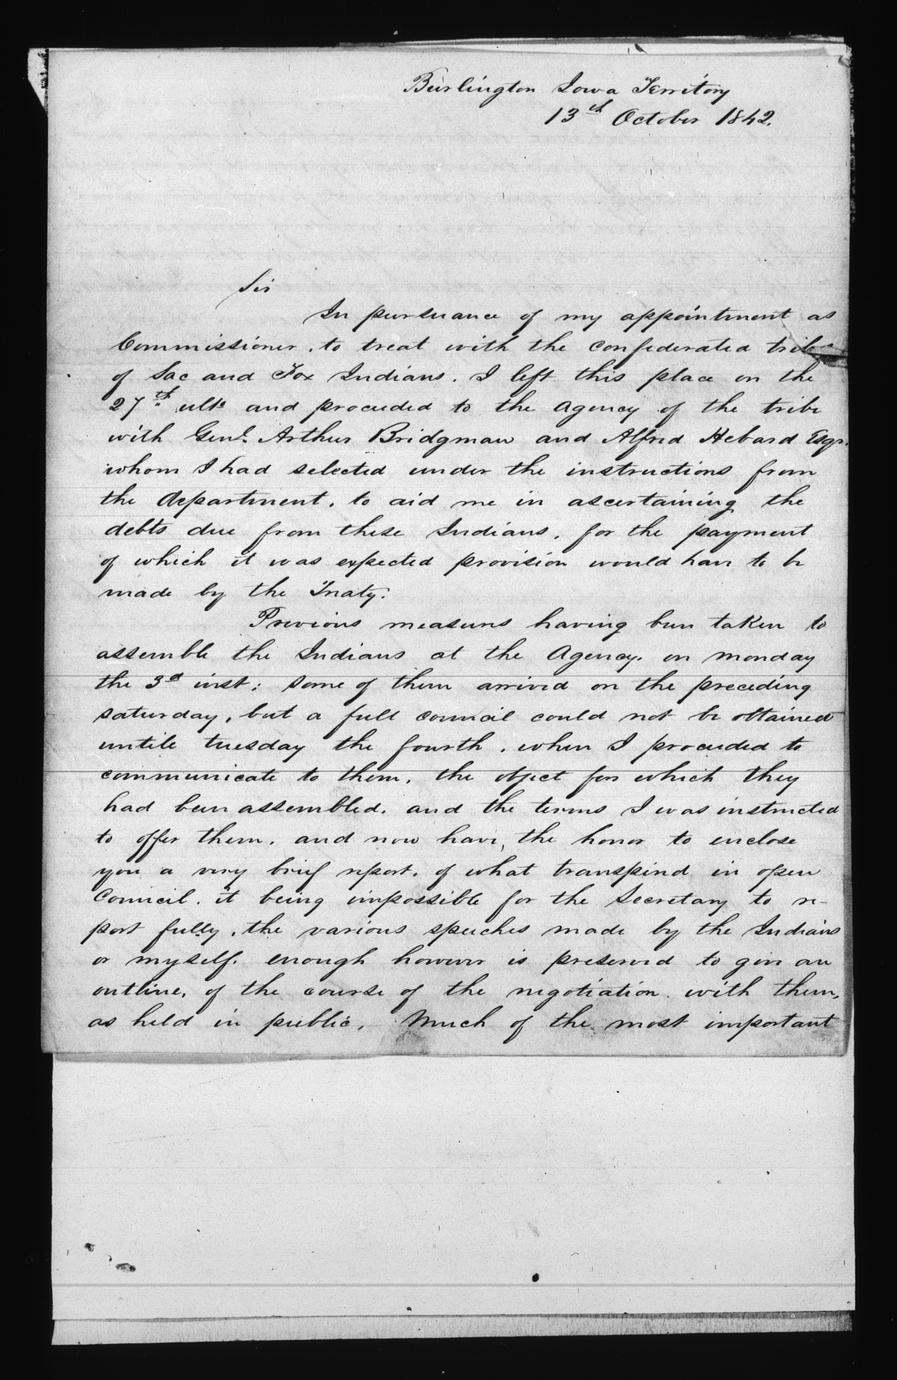 Burlington Iowa Territory
13th October 1842.
Sir
In pursuance of my appointment as
Commissioner, to treat with the confederated tribes
of Sac and Fox Indians. I left this place on the
27th ulto and proceeded to the agency of the tribe
with Genl. Arthur Bridgman and Alfred Hebard Esqr.
whom I had selected under the instructions from
the department, to aid me in ascertaining the
debts due from these Indians, for the payment
of which it was expected provision would have to be
made by the Treaty.
Previous measures having been taken to
assemble the Indians at the Agency. on monday
the 3d inst: some of them arrived on the preceding
saturday, but a full council could not be obtained
untile tuesday the fourth. when I proceeded to
communicate to them, the object for which they
had been assembled, and the terms I was instructed
to offer them, and now have, the honor to enclose
you a very brief report, of what transpired in open
Council. it being impossible for the Secretary to re-
port fully, the various speeches made by the Indians
or myself. enough however is preserved to give an
outline, of the course of the negotiation with them,
as held in public. Much of the most important